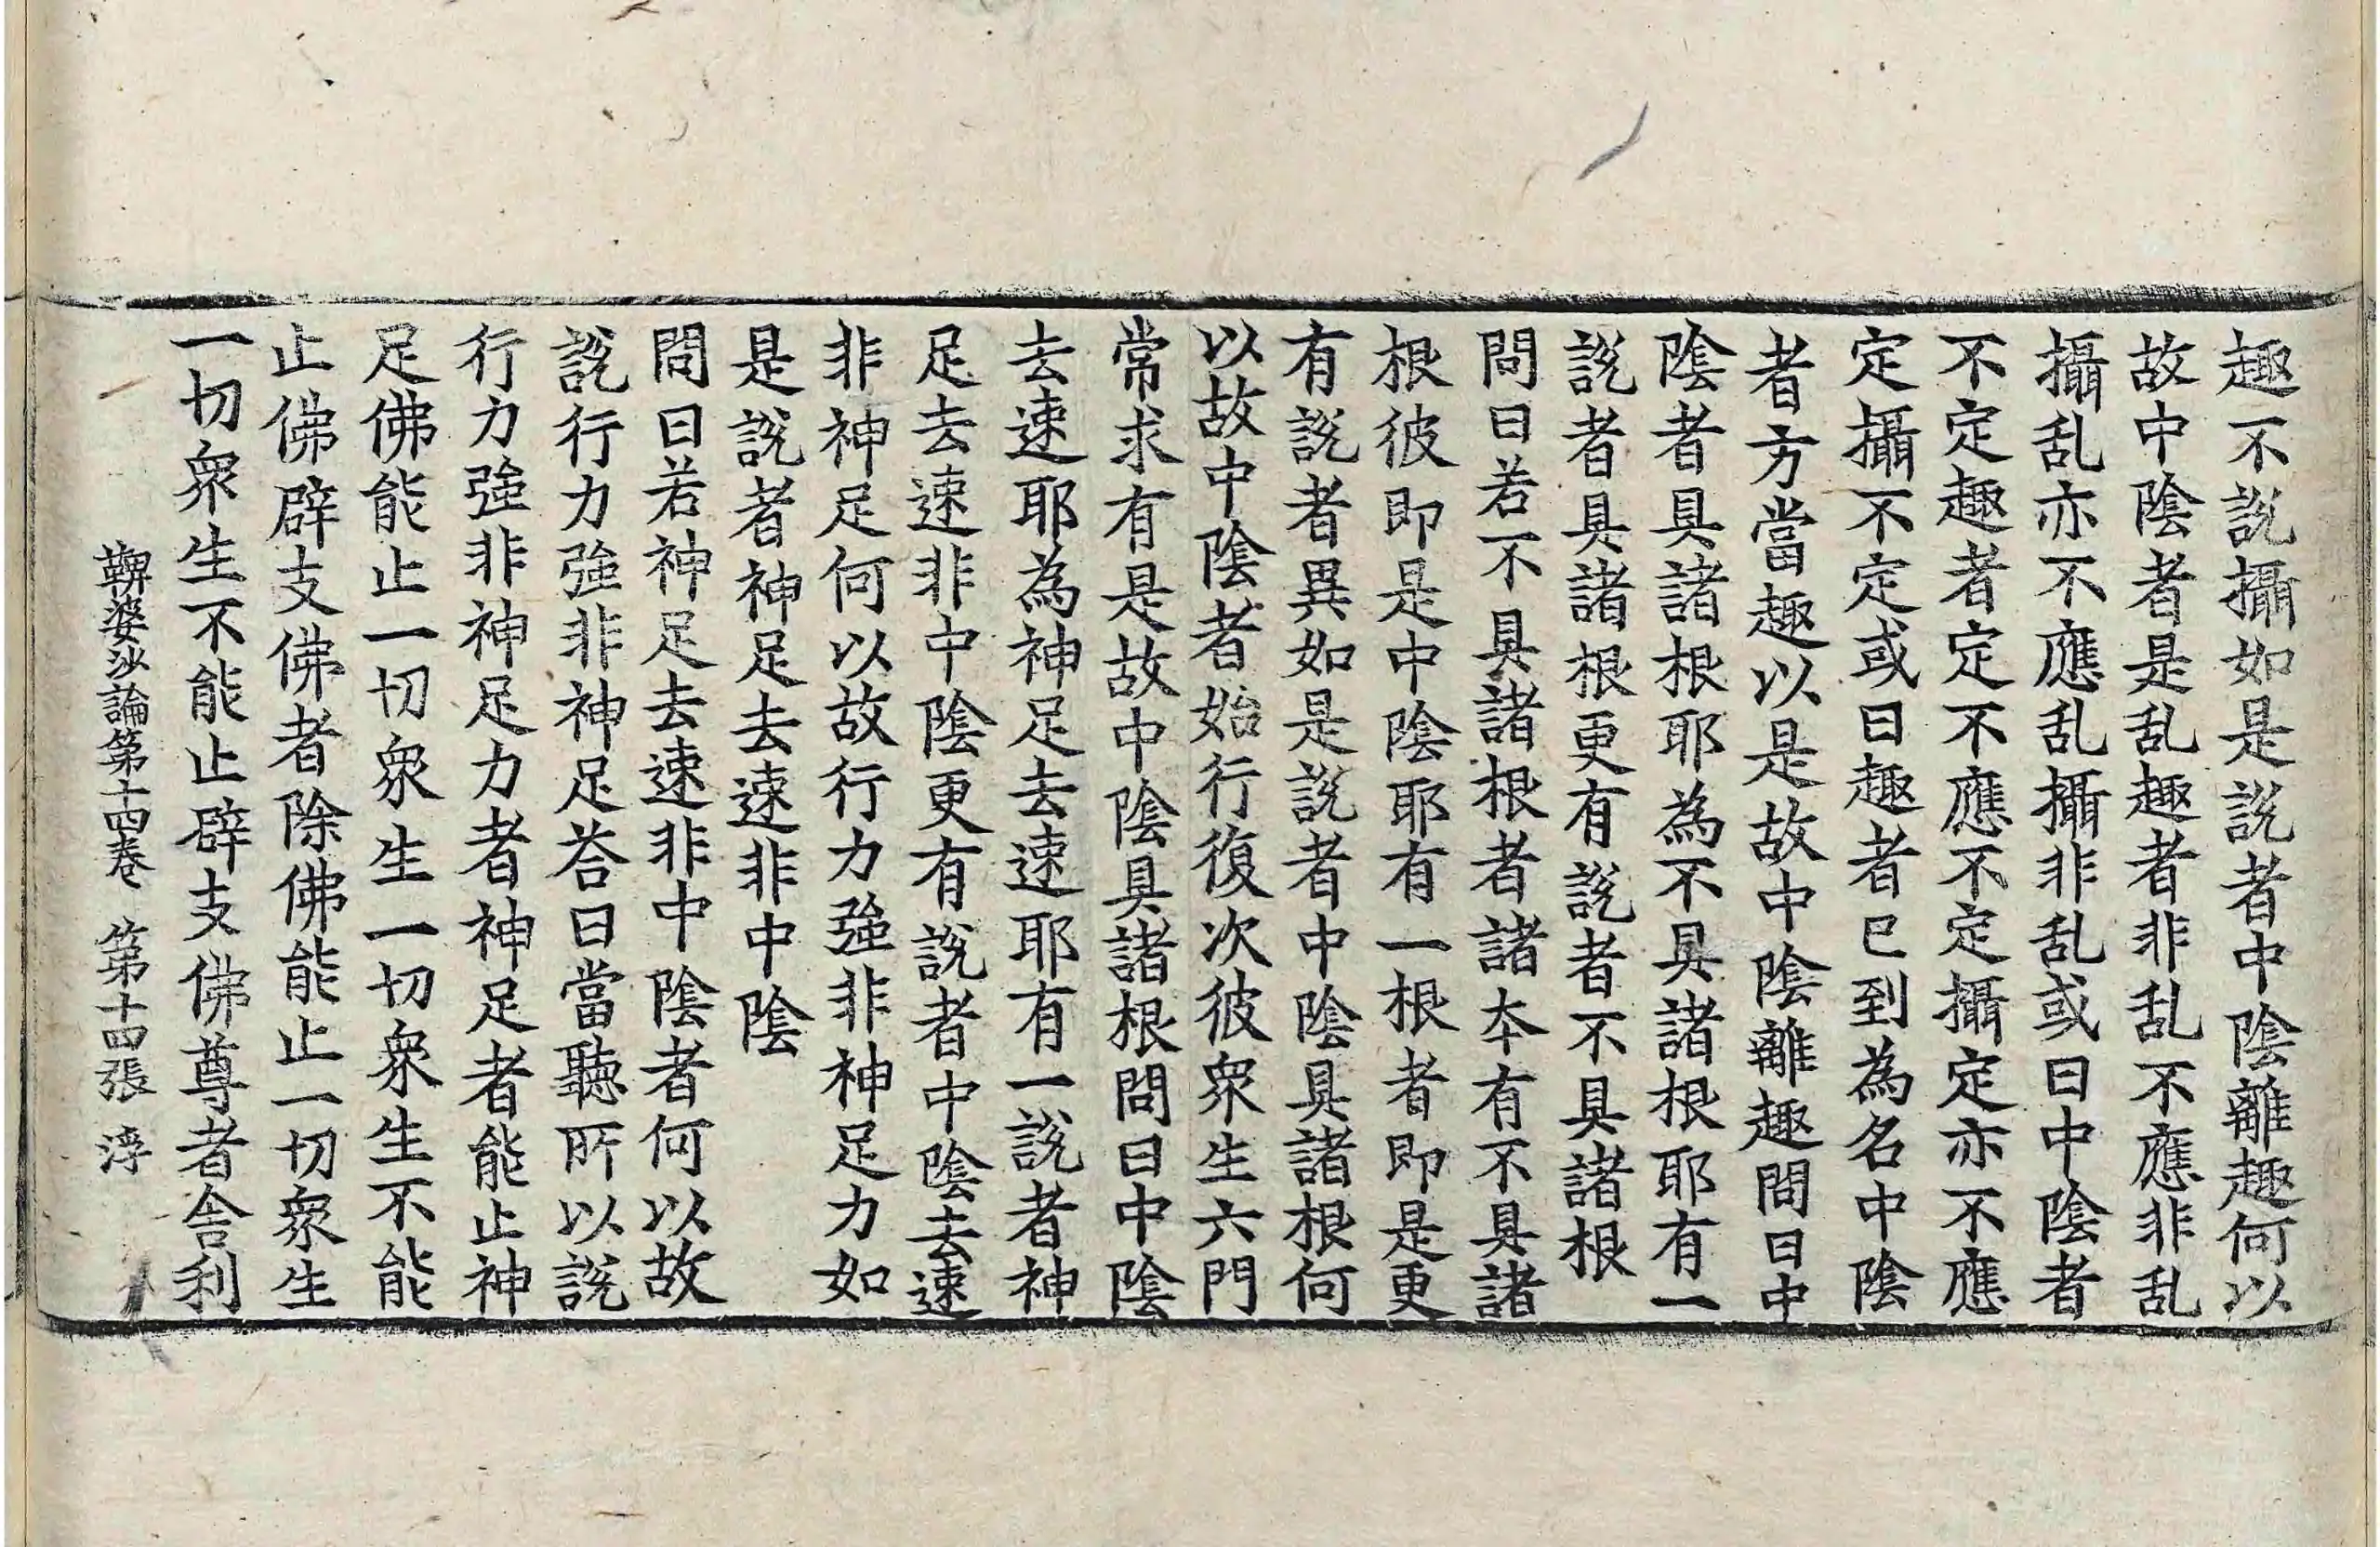 趣不說攝如是說者中陰離趣何以
故中陰者是乱趣者非乱不應非乱
攝乱亦不應乱攝非乱或曰中陰者
不定趣者定不應不定攝定亦不應
定攝不定或曰趣者已到為名中陰
者方當趣以是故中陰離趣問曰中
陰者具諸根耶為不具諸根耶有一
說者具諸根更有說者不具諸根
問曰若不具諸根者諸本有不具諸
根彼即是中陰耶有一根者即是更
有說者異如是說者中陰具諸根何
以故中陰者始行復次彼眾生六門
常求有是故中陰具諸根問曰中陰
去速耶為神足去速耶有一說者神
足去速非中陰更有說者中陰去速
非神足何以故行力強非神足力如
是說者神足去速非中陰
問曰若神足去速非中陰者何以故
說行力強非神足荅曰當聽所以說
行力強非神足力者神足者能止神
足佛能止一切眾生一切眾生不能
止佛辟支佛者除佛能止一切眾生
一切眾生不能止辟支佛尊者舍利
鞞婆沙論第十四卷 第十四張 淳